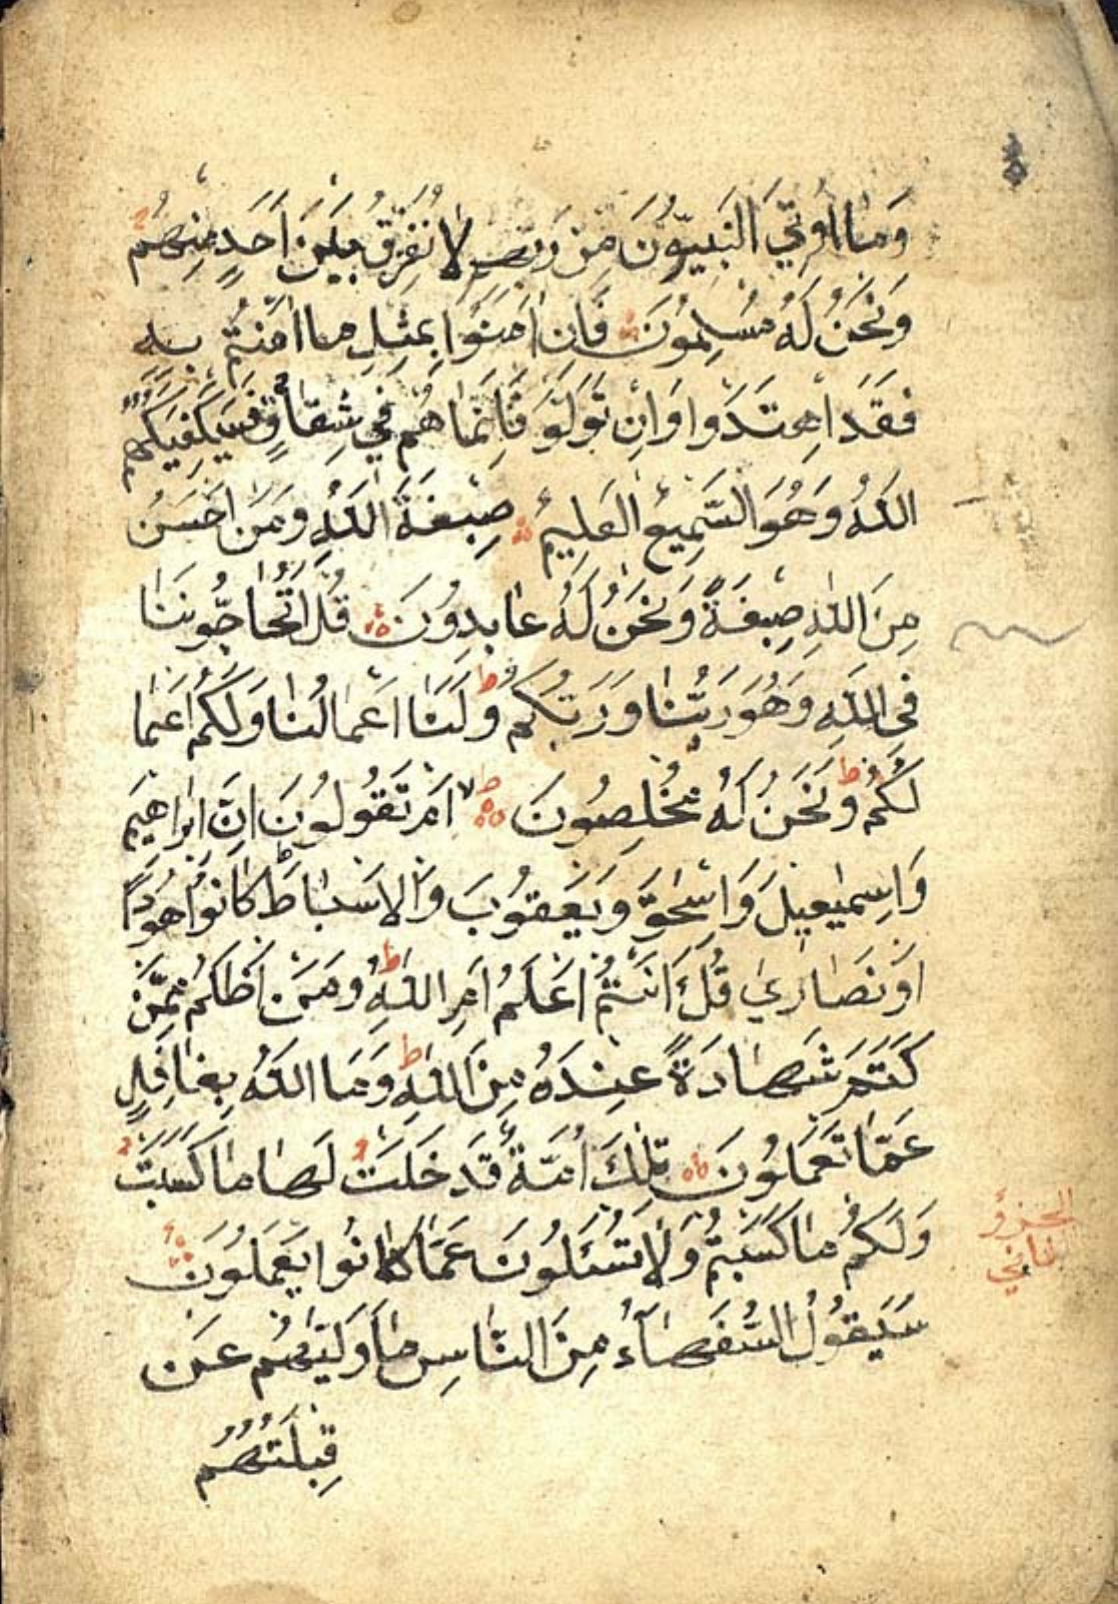 وَمَا اُوتِيَ النَّبِيُّونَ مِنْ رَبِّهِمْ لَا نُفَرِّقُ بَيْنَ اَحَدٍ مِنْهُمْ
وَنَحْنُ لَهُ مُسْلِمُونَ فَاِنْ اٰمَنُوا بِمِثْلِ مَا اٰمَنْتُمْ بِهِ
فَقَدِ اهْتَدَوا وَاِنْ تَوَلَّوْ فَاِنَّمَا هُمْ فِي شِقَاقٍ فَسَيَكْفِيكَهُمُ
اللّٰهُ وَهُوَ السَّمِيعُ الْعَلِيمُ صِبْغَةَ اللّٰهِ وَمَنْ اَحْسَنُ
مِنَ اللّٰهِ صِبْغَةً وَنَحْنُ لَهُ عَابِدُونَ قُلْ اَتُحَاجُّونَنَا
فِي اللّٰهِ وَهُوَ رَبُّنَا وَرَبُّكُمْ ط وَلَنَا اَعْمَالُنَا وَلَكُمْ اَعْمَا
لُكُمْ ط وَنَحْنُ لَهُ مُخْلِصُونَ ط لا اَمْ تَقُولُونَ اِنَّ اِبْرَاهِيمَ
وَاِسْمٰعِيلَ وَاِسْحٰقَ وَيَعْقُوبَ وَالْاَسْبَاطَ كَانُوا هُودًا
اَوْ نَصَارٰى قُلْ ءَاَنْتُمْ اَعْلَمُ اَمِ اللّٰهُ ط وَمَنْ اَظْلَمُ مِمَّنْ
كَتَمَ شَهَادَةً عِنْدَهُ مِنَ اللّٰهِ ط وَمَا اللّٰهُ بِغَافِلٍ
عَمَّا تَعْمَلُونَ تِلْكَ اُمَّةٌ قَدْ خَلَتْ لَهَا مَا كَسَبَتْ
وَلَكُمْ مَا كَسَبْتُمْ وَلَا تُسْئَلُونَ عَمَّا كَانُوا يَعْمَلُونَ
الجزؤ
الثاني
سَيَقُولُ السُّفَهَآءُ مِنَ النَّاسِ مَا وَلّٰيهُمْ عَنْ
قِبْلَتِهِمُ